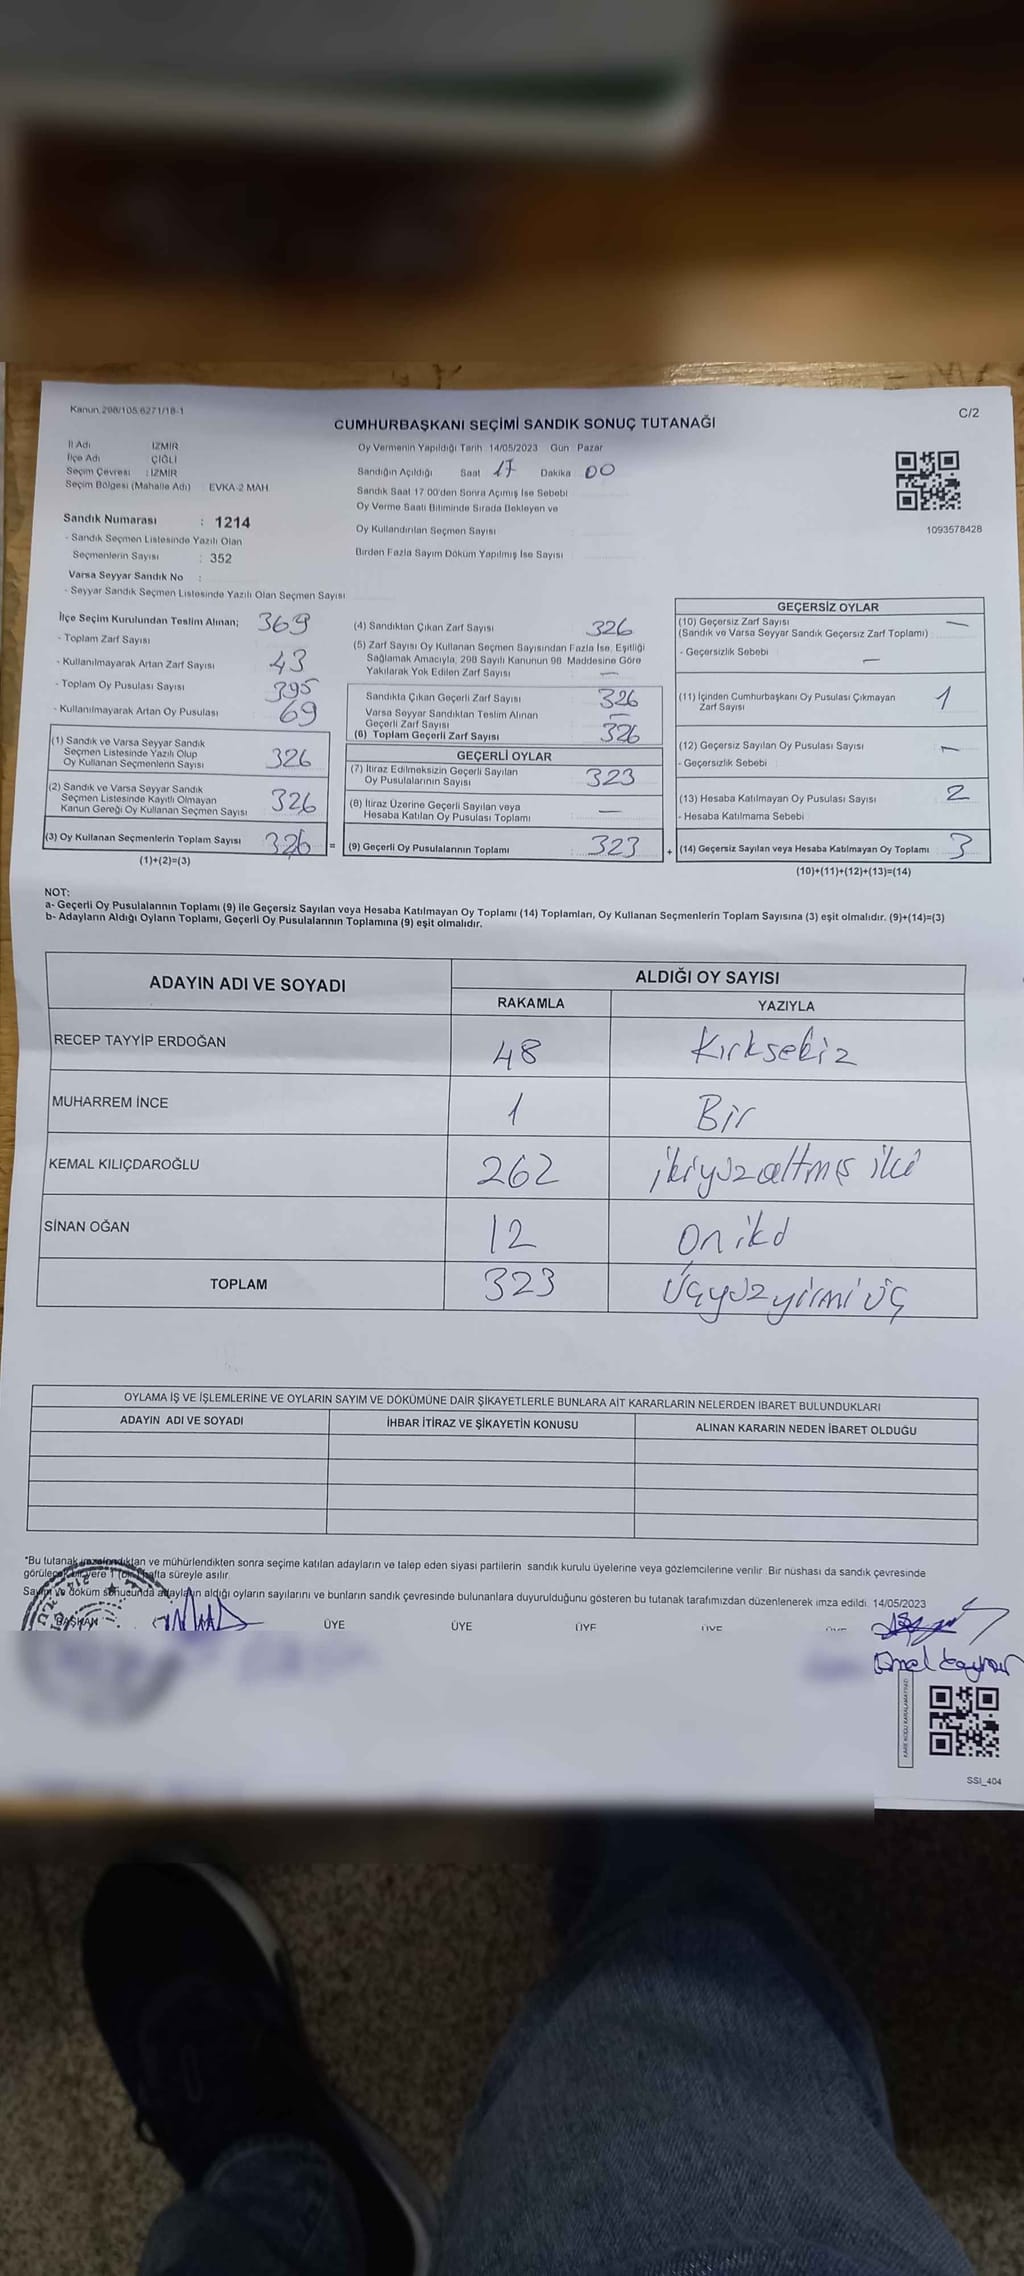 Kanun 298/105 6271/18-1
C/2
CUMHURBAŞKANI SEÇİMİ SANDIK SONUÇ TUTANAĞI
İl Adı İZMİR
İlçe Adı ÇİĞLİ
Seçim Çevresi : İZMİR
Seçim Bölgesi (Mahalle Adı) EVKA-2 MAH.
Oy Vermenin Yapıldığı Tarih 14/05/2023 Gün Pazar
Sandığın Açıldığı Saat 17 Dakika 00
Sandık Saat 17 00'den Sonra Açımış İse Sebebi
Oy Verme Saati Bitiminde Sırada Bekleyen ve
Oy Kullandırılan Seçmen Sayısı
Birden Fazla Sayım Döküm Yapılmış İse Sayısı
1093578428
Sandık Numarası : 1214
- Sandık Seçmen Listesinde Yazılı Olan
Seçmenlerin Sayısı : 352
Varsa Seyyar Sandık No :
- Seyyar Sandık Seçmen Listesinde Yazılı Olan Seçmen Sayısı
İlçe Seçim Kurulundan Teslim Alınan; 369
- Toplam Zarf Sayısı
- Kullanılmayarak Artan Zarf Sayısı 43
- Toplam Oy Pusulası Sayısı 395
- Kullanılmayarak Artan Oy Pusulası 69
(1) Sandık ve Varsa Seyyar Sandık
Seçmen Listesinde Yazılı Olup
Oy Kullanan Seçmenlerin Sayısı 326
(2) Sandık ve Varsa Seyyar Sandık
Seçmen Listesinde Kayıtlı Olmayan
Kanun Gereği Oy Kullanan Seçmen Sayısı 326
(3) Oy Kullanan Seçmenlerin Toplam Sayısı 326 =
(1)+(2)=(3)
(4) Sandıktan Çıkan Zarf Sayısı 326
(5) Zarf Sayısı Oy Kullanan Seçmen Sayısından Fazla İse, Eşitliği
Sağlamak Amacıyla, 298 Sayılı Kanunun 98 Maddesine Göre
Yakılarak Yok Edilen Zarf Sayısı —
Sandıkta Çıkan Geçerli Zarf Sayısı 326
Varsa Seyyar Sandıktan Teslim Alınan
Geçerli Zarf Sayısı —
(6) Toplam Geçerli Zarf Sayısı 326
GEÇERLİ OYLAR
(7) İtiraz Edilmeksizin Geçerli Sayılan
Oy Pusulalarının Sayısı 323
(8) İtiraz Üzerine Geçerli Sayılan veya
Hesaba Katılan Oy Pusulası Toplamı —
(9) Geçerli Oy Pusulalarının Toplamı : 323 +
GEÇERSİZ OYLAR
(10) Geçersiz Zarf Sayısı —
(Sandık ve Varsa Seyyar Sandık Geçersiz Zarf Toplamı)
- Geçersizlik Sebebi —
(11) İçinden Cumhurbaşkanı Oy Pusulası Çıkmayan
Zarf Sayısı 1
(12) Geçersiz Sayılan Oy Pusulası Sayısı —
- Geçersizlik Sebebi
(13) Hesaba Katılmayan Oy Pusulası Sayısı 2
- Hesaba Katılmama Sebebi
(14) Geçersiz Sayılan veya Hesaba Katılmayan Oy Toplamı 3
(10)+(11)+(12)+(13)=(14)
NOT:
a- Geçerli Oy Pusulalarının Toplamı (9) ile Geçersiz Sayılan veya Hesaba Katılmayan Oy Toplamı (14) Toplamları, Oy Kullanan Seçmenlerin Toplam Sayısına (3) eşit olmalıdır. (9)+(14)=(3)
b- Adayların Aldığı Oyların Toplamı, Geçerli Oy Pusulalarının Toplamına (9) eşit olmalıdır.
ADAYIN ADI VE SOYADI ALDIĞI OY SAYISI
RAKAMLA YAZIYLA
RECEP TAYYİP ERDOĞAN 48 Kırksekiz
MUHARREM İNCE 1 Bir
KEMAL KILIÇDAROĞLU 262 ikiyüzaltmış iki
SİNAN OĞAN 12 Oniki
TOPLAM 323 Üçyüzyirmi üç
OYLAMA İŞ VE İŞLEMLERİNE VE OYLARIN SAYIM VE DÖKÜMÜNE DAİR ŞİKAYETLERLE BUNLARA AİT KARARLARIN NELERDEN İBARET BULUNDUKLARI
ADAYIN ADI VE SOYADI İHBAR İTİRAZ VE ŞİKAYETİN KONUSU ALINAN KARARIN NEDEN İBARET OLDUĞU
*Bu tutanak imzalandıktan ve mühürlendikten sonra seçime katılan adayların ve talep eden siyasi partilerin sandık kurulu üyelerine veya gözlemcilerine verilir. Bir nüshası da sandık çevresinde
görülecek bir yere 1 (bir) hafta süreyle asılır.
Sayım ve döküm sonucunda adayların aldığı oyların sayılarını ve bunların sandık çevresinde bulunanlara duyurulduğunu gösteren bu tutanak tarafımızdan düzenlenerek imza edildi. 14/05/2023
BAŞKAN ÜYE ÜYE ÜYE ÜYE
KARE KODU KARALAMAYINIZ
SSI_404